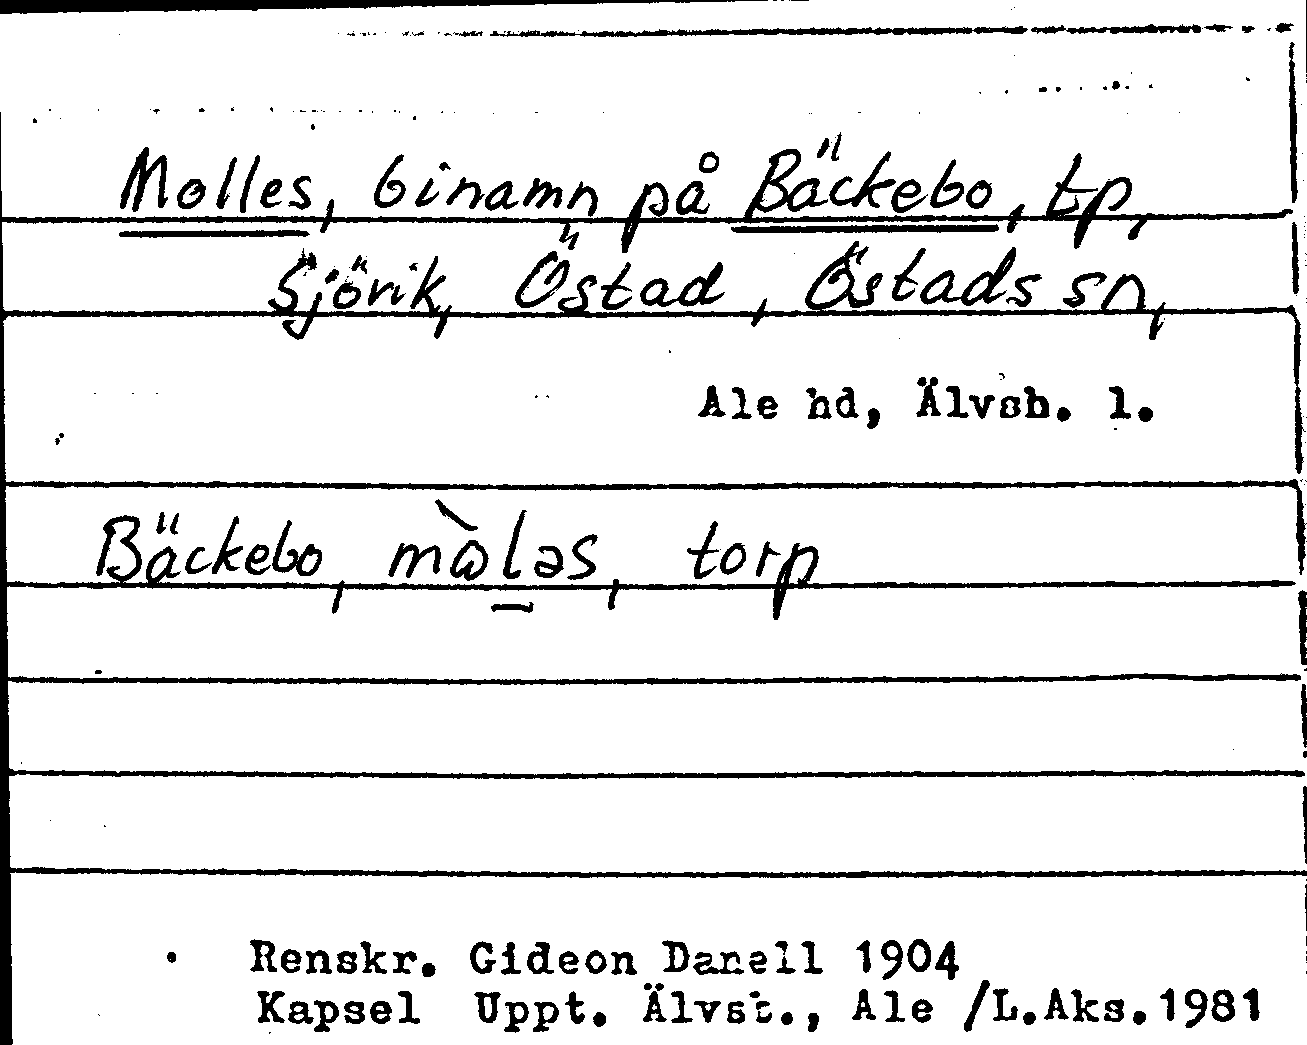 Molles, binamn på Bäckebo, tp,
Sjövik, Östad, Östads sn,
Ale hd, Älvsb. l.
Bäckebo, mὼl̠əs, torp
Renskr. Gideon Danell 1904
Kapsel Uppt. Älvsb., Ale /L.Aks.1981